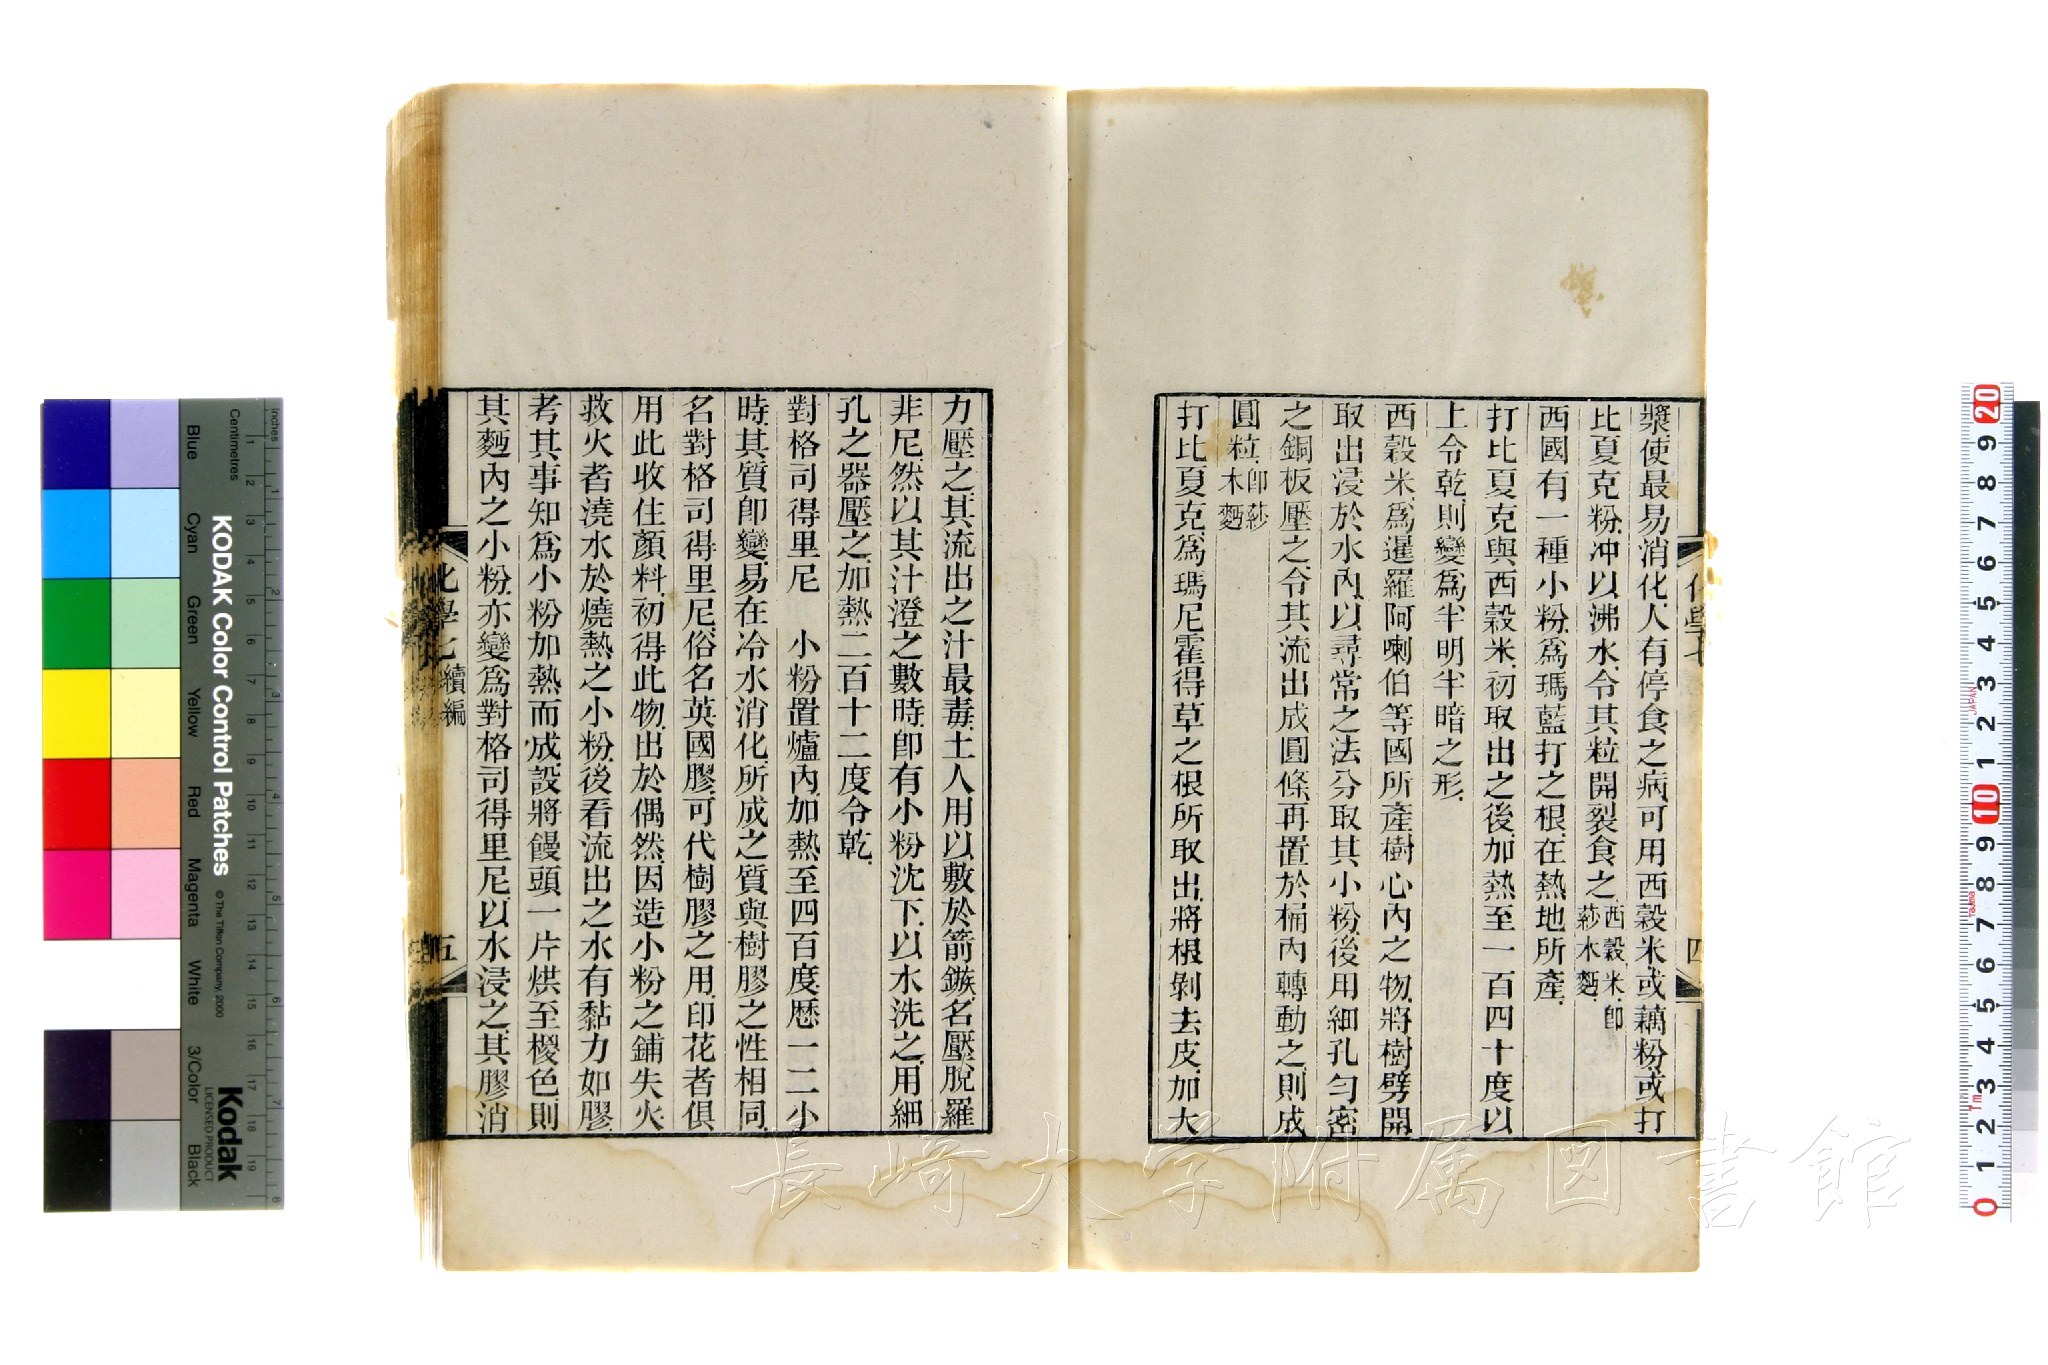 漿使最易消化人有停食之病可用西穀米或藕粉或打
比夏克粉冲以沸水令其粒開裂食之西穀米卽莎木麪
西國有一種小粉爲瑪藍打之根在熱地所產
打比夏克與西穀米初取出之後加熱至一百四十度以
上令乾則變爲半明半暗之形
西穀米爲暹羅阿喇伯等國所產樹心內之物將樹劈開
取出浸於水內以尋常之法分取其小粉後用細孔勻密
之銅板壓之令其流出成圓條再置於桶內轉動之則成
圓粒卽莎木麪
打比夏克爲瑪尼霍得草之根所取出將根剝去皮加大
四
力壓之其流出之汁最毒土人用以敷於箭鏃名壓脫羅
非尼然以其汁澄之數時卽有小粉沈下以水洗之用細
孔之器壓之加熱二百十二度令乾
對格司得里尼　小粉置爐內加熱至四百度歷一二小
時其質卽變易在冷水消化所成之質與樹膠之性相同
名對格司得里尼俗名英國膠可代樹膠之用印花者俱
用此收住顏料初得此物出於偶然因造小粉之鋪失火
救火者澆水於燒熱之小粉後看流出之水有黏力如膠
考其事知爲小粉加熱而成設將饅頭一片烘至椶色則
其麪內之小粉亦變爲對格司得里尼以水浸之其膠消
續編
五
長崎大学附属図書館
KODAK Color Control Patches
© The Tiffen Company, 2000
Kodak
LICENSED PRODUCT
inches
Centimetres
Blue
Cyan
Green
Yellow
Red
Magenta
White
3/Color
Black
1 2 3 4 5 6 7 8 9 10 11 12 13 14 15 16 17 18 19
1 2 3 4 5 6 7 8
20 9 8 7 6 5 4 3 2 1 10 9 8 7 6 5 4 3 2 1 0